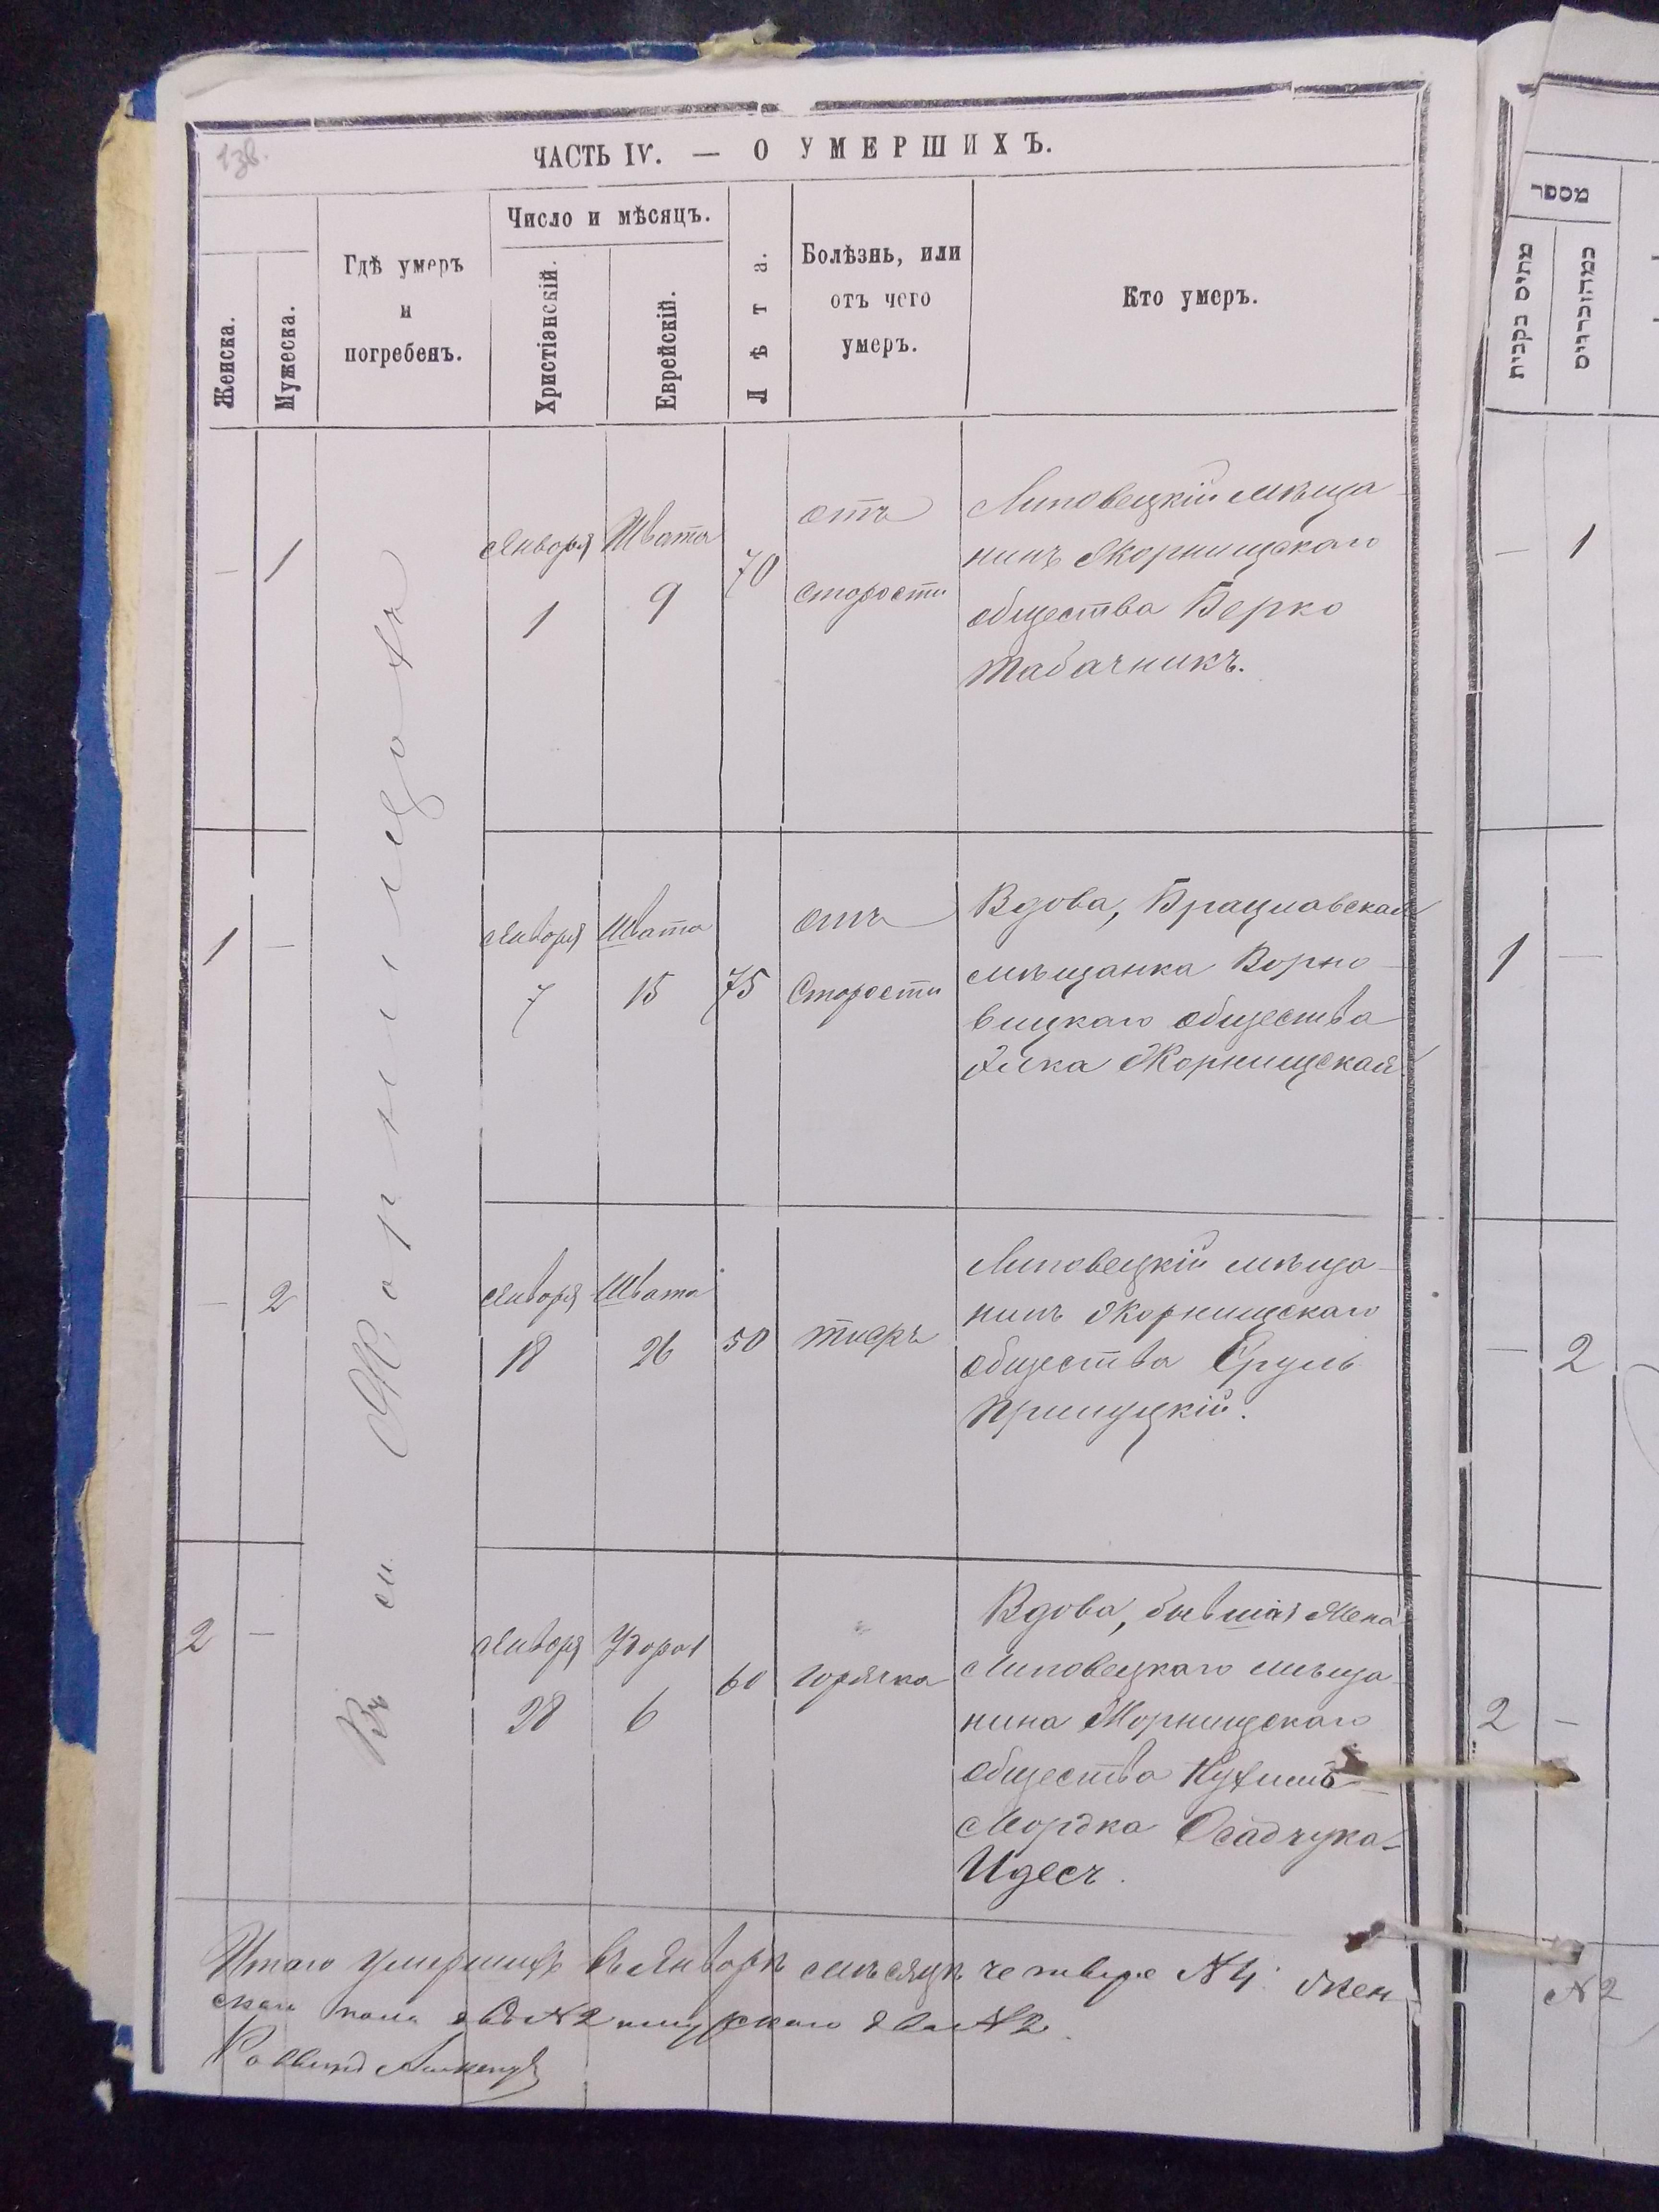 138.
ЧАСТЬ IV. — О УМЕРШИХЪ.
Женска.
Мужеска.
Гдѣ умеръ
и
погребенъ.
Число и мѣсяцъ.
Христіанскій.
Еврейскій.
Лѣта.
Болѣзнь, или
отъ чего
умеръ.
Кто умеръ.
Въ м. Жорнищахъ
— 1
Января
1
Швата
9
70
отъ
старости
Липовецкій мѣща-
нинъ Жорнищскаго
общества Берко
Табачникъ.
1 —
Января
7
Швата
15
75
отъ
Старости
Вдова, Брацлавская
мѣщанка Ворно-
вицкаго общества
Жорнищская
— 2
Января
18
Швата
26
50
тифъ
Липовецкій мѣща-
нинъ Жорнищскаго
общества Сруль
Прилуцкій.
2 —
Января
28
6
60
горячка
Вдова, бывшая Жена
Липовецкаго мѣща-
нина Жорнищскаго
общества
Мордка Осадчука-
Идесъ.
Итого умершихъ въ Январѣ мѣсяцѣ четверо № 4: Жен-
скаго пола двѣ № 2 мужскаго два № 2.
Раввинъ
מספר
מתים נקבות
כמהזכרים
— 1
1 —
— 2
2 —
№ 2